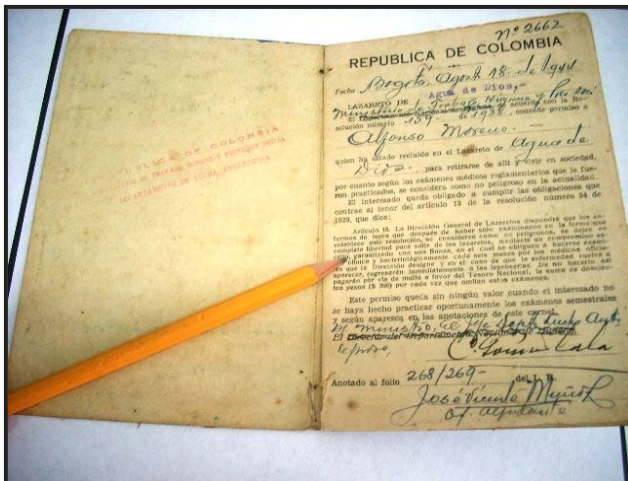 REPUBLICA DE COLOMBIA
MINISTERIO DE TRABAJO, HIGIENE Y PREVISION SOCIAL
DEPARTAMENTO DE LUCHA ANTILEPROSA
Nº 2662
REPUBLICA DE COLOMBIA
Fecha Bogotá, Agost. 18 de 1944
LAZARETO DE Agua de Dios,-
Ministerio d Trabajo Higiene y Prev. Soci
El de acuerdo con la Re-
solución número 159- de 1938, concede permiso a
Alfonso Moreno.
quien ha estado recluído en el Lazareto de Agua de
Dios para retirarse de allí y vivir en sociedad,
por cuanto según los exámenes médicos reglamentarios que le fue-
ron practicados, se considera como no peligroso en la actualidad.
El interesado queda obligado a cumplir las obligaciones que
contrae al tenor del artículo 13 de la resolución número 34 de
1929, que dice:
Artículo 13. La Dirección General de Lazaretos dispondrá que los en-
fermos de lepra que después de haber sido examinados en la forma que
establece esta resolución, se consideren como no peligrosos, se dejen en
completa libertad para salir de los lazaretos, mediante un compromiso es-
garantizado con una fianza, en el cual se obliguen a hacerse exami-
clínica y bacteriológicamente cada seis meses por los médicos oficia-
es que la Dirección designe y en el caso de que la enfermedad vuelva a
aparecer, regresarán inmediatamente a las leproserías. De no hacerlo así
pagarán por vía de multa a favor del Tesoro Nacional, la suma de doscien-
tos pesos ($ 200) por cada vez que omitan estos exámenes.
Este permiso queda sin ningún valor cuando el interesado no
se haya hecho practicar oportunamente los exámenes semestrales
y según aparezca en las anotaciones de este carnet.
El Ministro, el Jefe Depto Lucha Anti
El Director del Departamento Nacional de
leprosa,
Anotado al folio 268/269- del L. R.
José Vicente Muñoz
Of. Ayudante